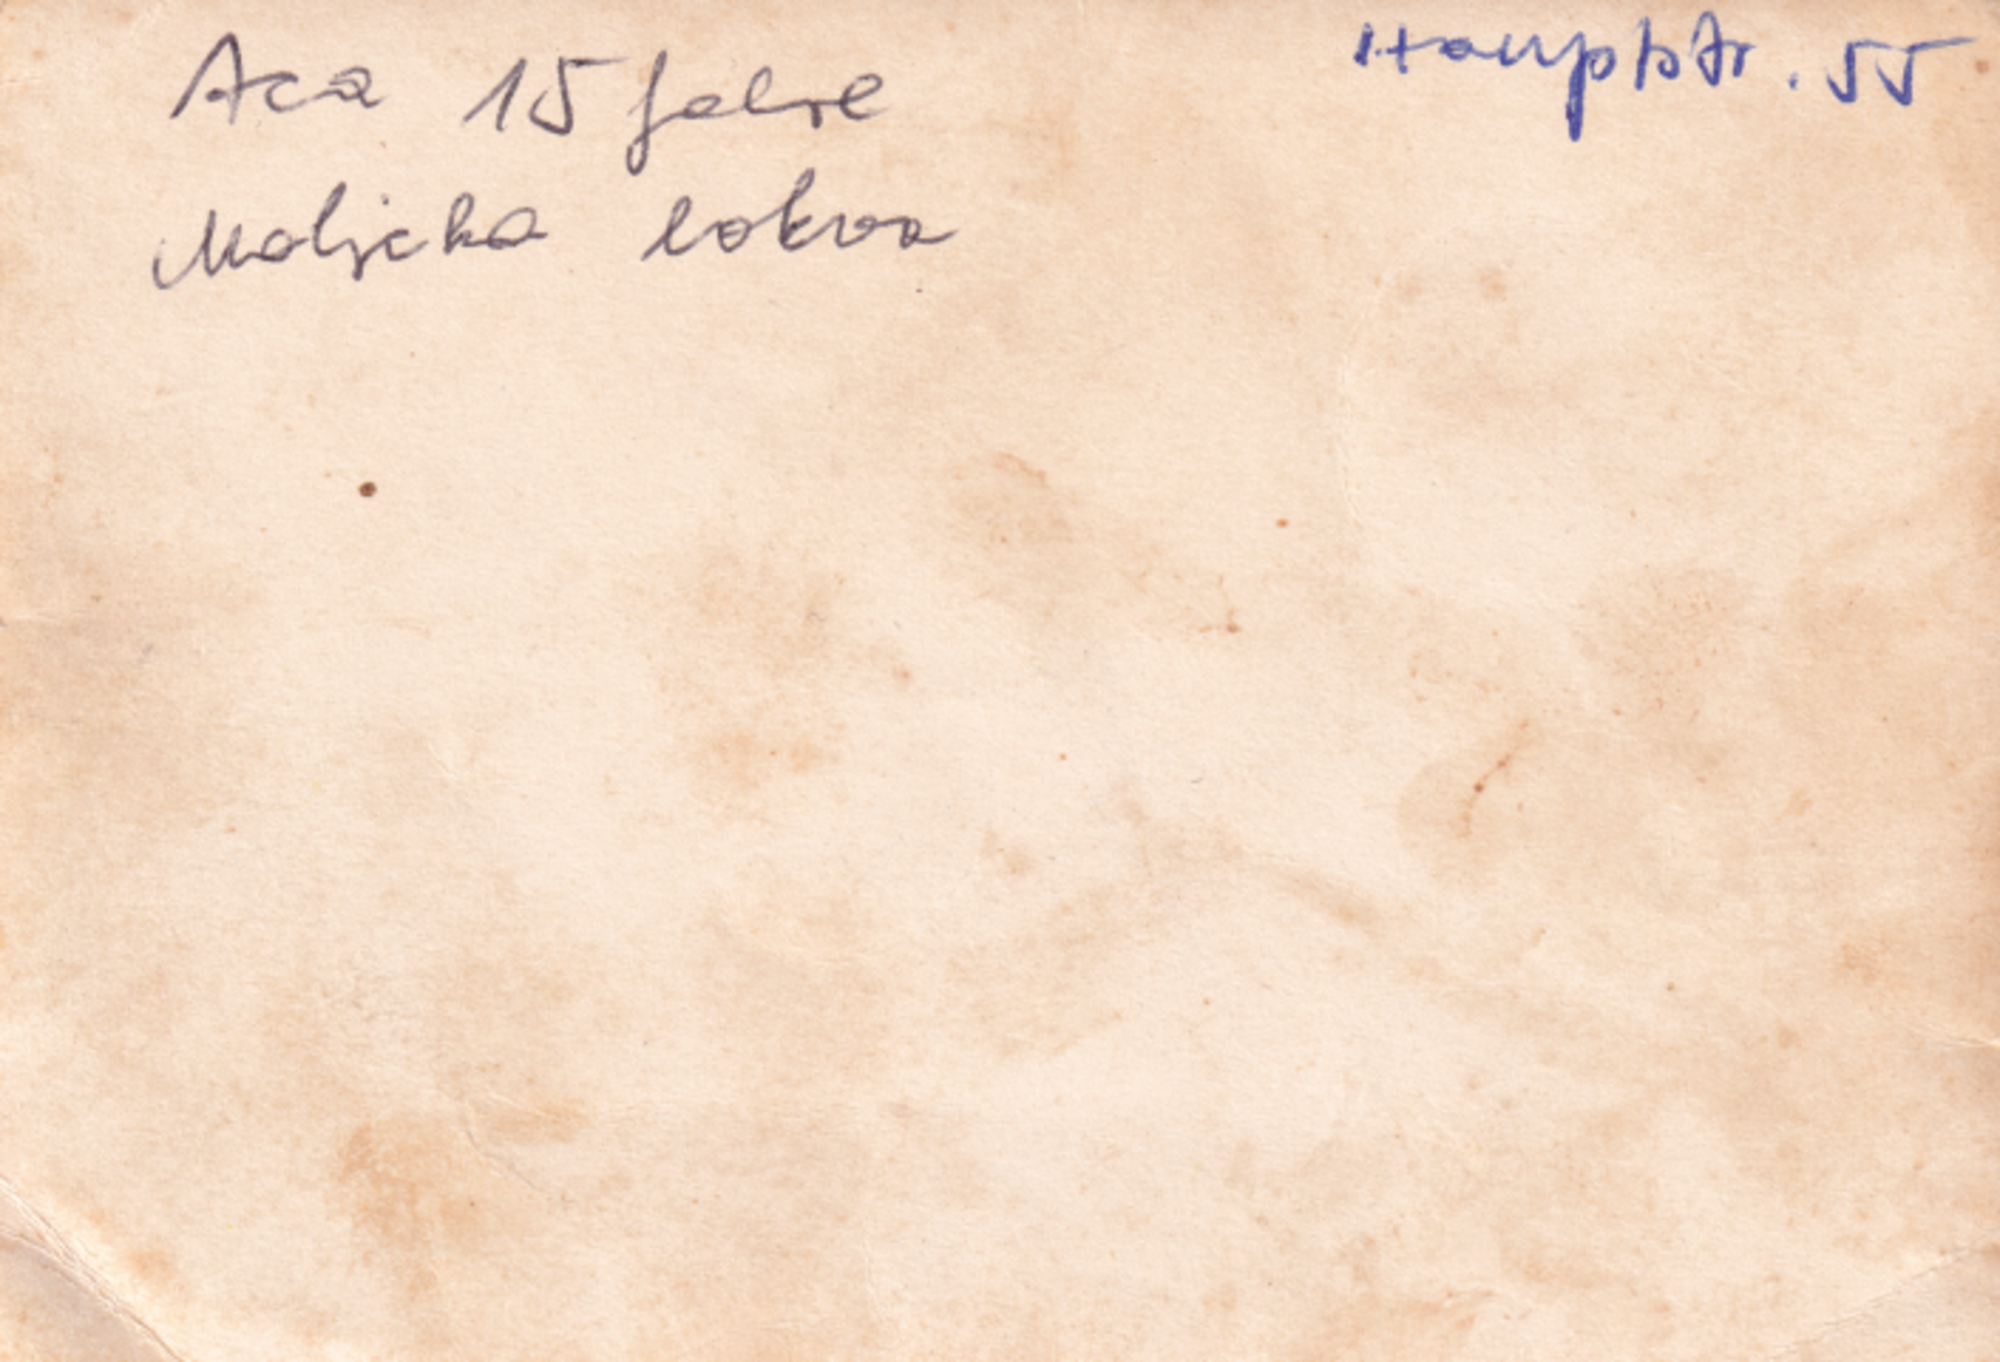 Aca 15 Jahre
Maljcka lokva
Hauptstr. 55